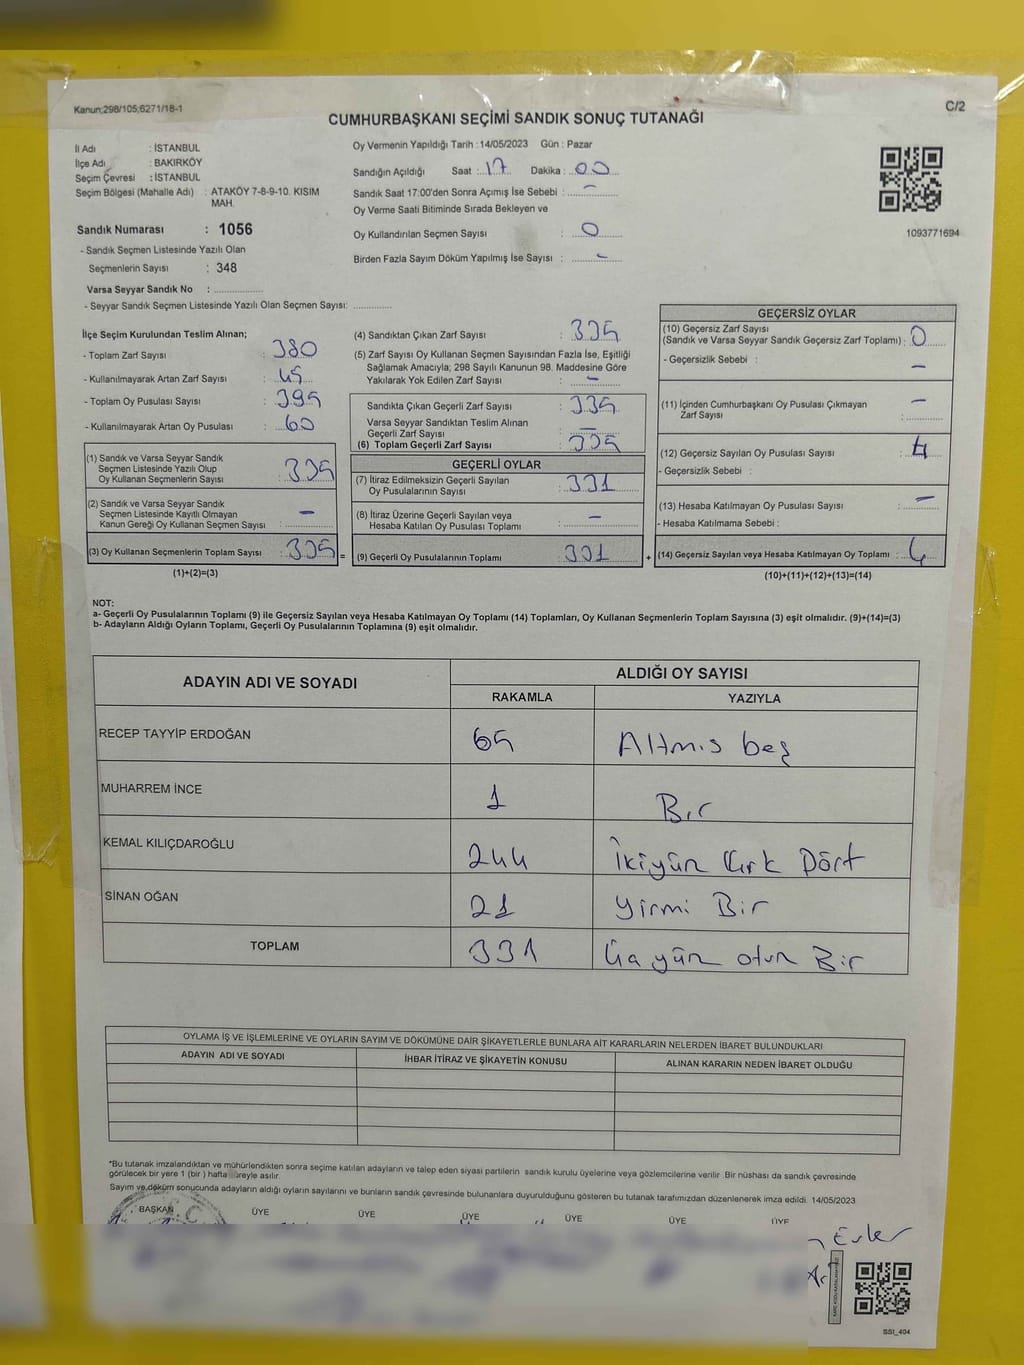 Kanun;298/105;6271/18-1
C/2
CUMHURBAŞKANI SEÇİMİ SANDIK SONUÇ TUTANAĞI
İl Adı : İSTANBUL
İlçe Adı : BAKIRKÖY
Seçim Çevresi : İSTANBUL
Seçim Bölgesi (Mahalle Adı) : ATAKÖY 7-8-9-10. KISIM
MAH.
Sandık Numarası : 1056
- Sandık Seçmen Listesinde Yazılı Olan
Seçmenlerin Sayısı : 348
Varsa Seyyar Sandık No :
- Seyyar Sandık Seçmen Listesinde Yazılı Olan Seçmen Sayısı:
Oy Vermenin Yapıldığı Tarih : 14/05/2023 Gün : Pazar
Sandığın Açıldığı Saat : 17 Dakika : 00
Sandık Saat 17:00'den Sonra Açımış İse Sebebi : -
Oy Verme Saati Bitiminde Sırada Bekleyen ve
Oy Kullandırılan Seçmen Sayısı : 0
Birden Fazla Sayım Döküm Yapılmış İse Sayısı : -
1093771694
İlçe Seçim Kurulundan Teslim Alınan;
- Toplam Zarf Sayısı : 380
- Kullanılmayarak Artan Zarf Sayısı : 45
- Toplam Oy Pusulası Sayısı : 395
- Kullanılmayarak Artan Oy Pusulası : 60
(1) Sandık ve Varsa Seyyar Sandık
Seçmen Listesinde Yazılı Olup
Oy Kullanan Seçmenlerin Sayısı : 335
(2) Sandık ve Varsa Seyyar Sandık
Seçmen Listesinde Kayıtlı Olmayan
Kanun Gereği Oy Kullanan Seçmen Sayısı : -
(3) Oy Kullanan Seçmenlerin Toplam Sayısı : 335 =
(1)+(2)=(3)
(4) Sandıktan Çıkan Zarf Sayısı : 335
(5) Zarf Sayısı Oy Kullanan Seçmen Sayısından Fazla İse, Eşitliği
Sağlamak Amacıyla; 298 Sayılı Kanunun 98. Maddesine Göre
Yakılarak Yok Edilen Zarf Sayısı : -
Sandıkta Çıkan Geçerli Zarf Sayısı : 335
Varsa Seyyar Sandıktan Teslim Alınan
Geçerli Zarf Sayısı : -
(6) Toplam Geçerli Zarf Sayısı : 335
GEÇERLİ OYLAR
(7) İtiraz Edilmeksizin Geçerli Sayılan
Oy Pusulalarının Sayısı : 331
(8) İtiraz Üzerine Geçerli Sayılan veya
Hesaba Katılan Oy Pusulası Toplamı : -
(9) Geçerli Oy Pusulalarının Toplamı : 331 +
GEÇERSİZ OYLAR
(10) Geçersiz Zarf Sayısı
(Sandık ve Varsa Seyyar Sandık Geçersiz Zarf Toplamı) : 0
- Geçersizlik Sebebi : -
(11) İçinden Cumhurbaşkanı Oy Pusulası Çıkmayan
Zarf Sayısı : -
(12) Geçersiz Sayılan Oy Pusulası Sayısı : 4
- Geçersizlik Sebebi :
(13) Hesaba Katılmayan Oy Pusulası Sayısı : -
- Hesaba Katılmama Sebebi :
(14) Geçersiz Sayılan veya Hesaba Katılmayan Oy Toplamı : 4
(10)+(11)+(12)+(13)=(14)
NOT:
a- Geçerli Oy Pusulalarının Toplamı (9) ile Geçersiz Sayılan veya Hesaba Katılmayan Oy Toplamı (14) Toplamları, Oy Kullanan Seçmenlerin Toplam Sayısına (3) eşit olmalıdır. (9)+(14)=(3)
b- Adayların Aldığı Oyların Toplamı, Geçerli Oy Pusulalarının Toplamına (9) eşit olmalıdır.
ADAYIN ADI VE SOYADI
ALDIĞI OY SAYISI
RAKAMLA YAZIYLA
RECEP TAYYİP ERDOĞAN 65 Altmıs beş
MUHARREM İNCE 1 Bir
KEMAL KILIÇDAROĞLU 244 İkiyün Kırk Dört
SİNAN OĞAN 21 Yirmi Bir
TOPLAM 331 yün otuz Bir
OYLAMA İŞ VE İŞLEMLERİNE VE OYLARIN SAYIM VE DÖKÜMÜNE DAİR ŞİKAYETLERLE BUNLARA AİT KARARLARIN NELERDEN İBARET BULUNDUKLARI
ADAYIN ADI VE SOYADI İHBAR İTİRAZ VE ŞİKAYETİN KONUSU ALINAN KARARIN NEDEN İBARET OLDUĞU
*Bu tutanak imzalandıktan ve mühürlendikten sonra seçime katılan adayların ve talep eden siyasi partilerin sandık kurulu üyelerine veya gözlemcilerine verilir. Bir nüshası da sandık çevresinde
görülecek bir yere 1 (bir) hafta süreyle asılır.
Sayım ve döküm sonucunda adayların aldığı oyların sayılarını ve bunların sandık çevresinde bulunanlara duyurulduğunu gösteren bu tutanak tarafımızdan düzenlenerek imza edildi. 14/05/2023
BAŞKAN ÜYE ÜYE ÜYE ÜYE ÜYE ÜYE
SSI_404